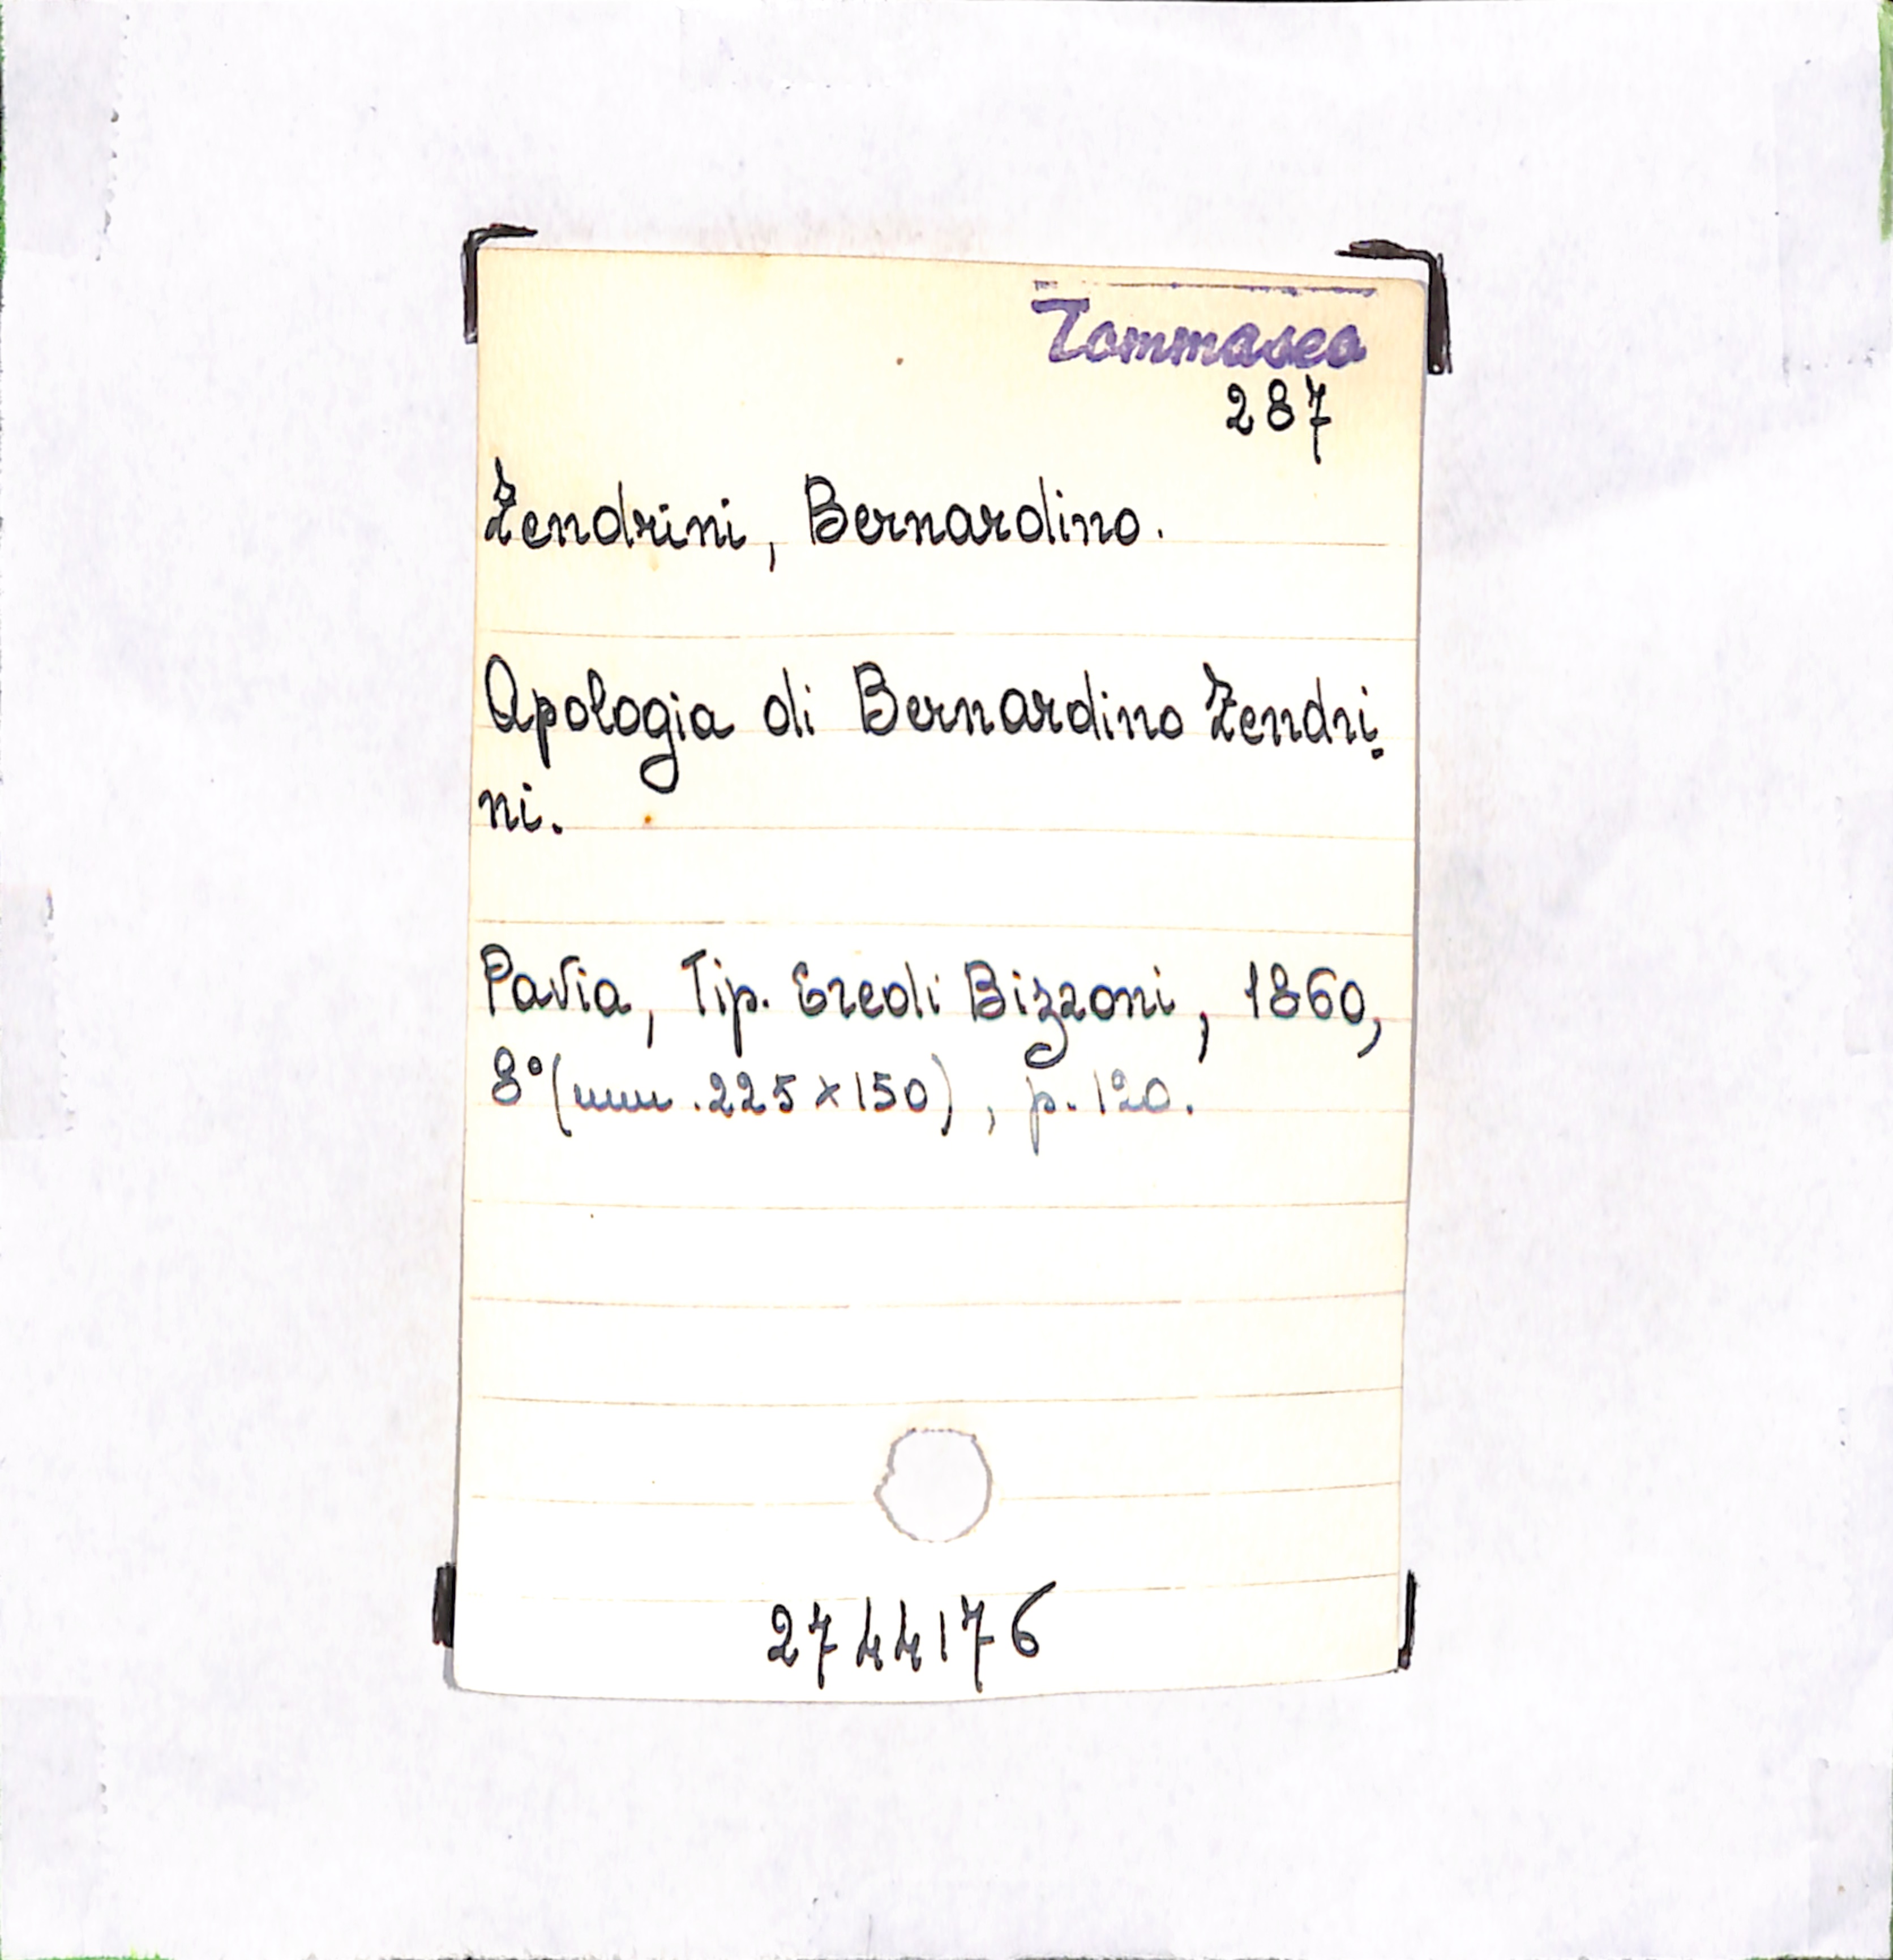 Tommaseo
287
Zendrini, Bernardino.
Apologia di Bernardino Zendri
ni.
Pavia, Tip. Eredi Bizzoni, 1860,
8° (mm. 225 x 150), p. 120.
2744176